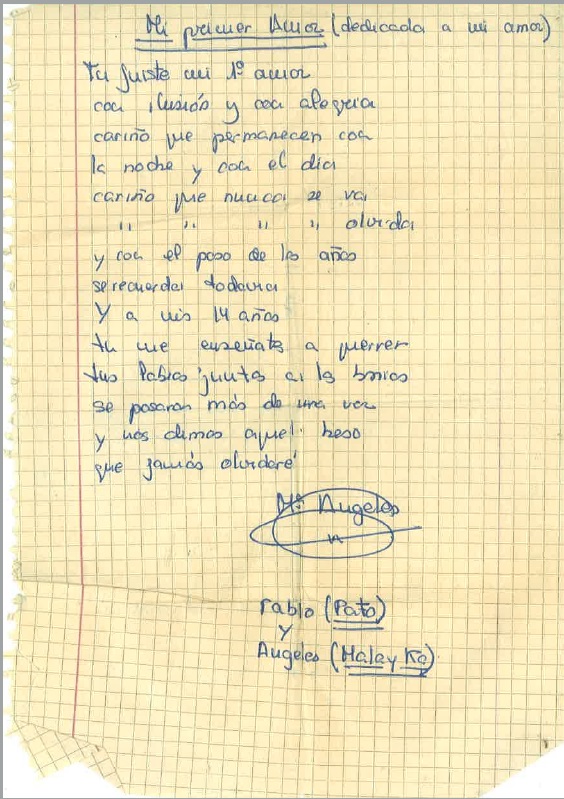 Mi primer Amor (dedicada a mi amor)
Tu fuiste mi 1º amor
con ilusión y con alegria
cariño que permanecen con
la noche y con el dia
cariño que nunca se va
" " " " olvida
y con el paso de los años
se recuerda todavia
Y a mis 14 años
tu me enseñats a querrer
tus labios juntos a los
se posaron más de una vez
y nos dimos aquel beso
que jamás olvidaré
Mª Angeles
Pablo (Pato)
Y
Angeles (Malay Ka)